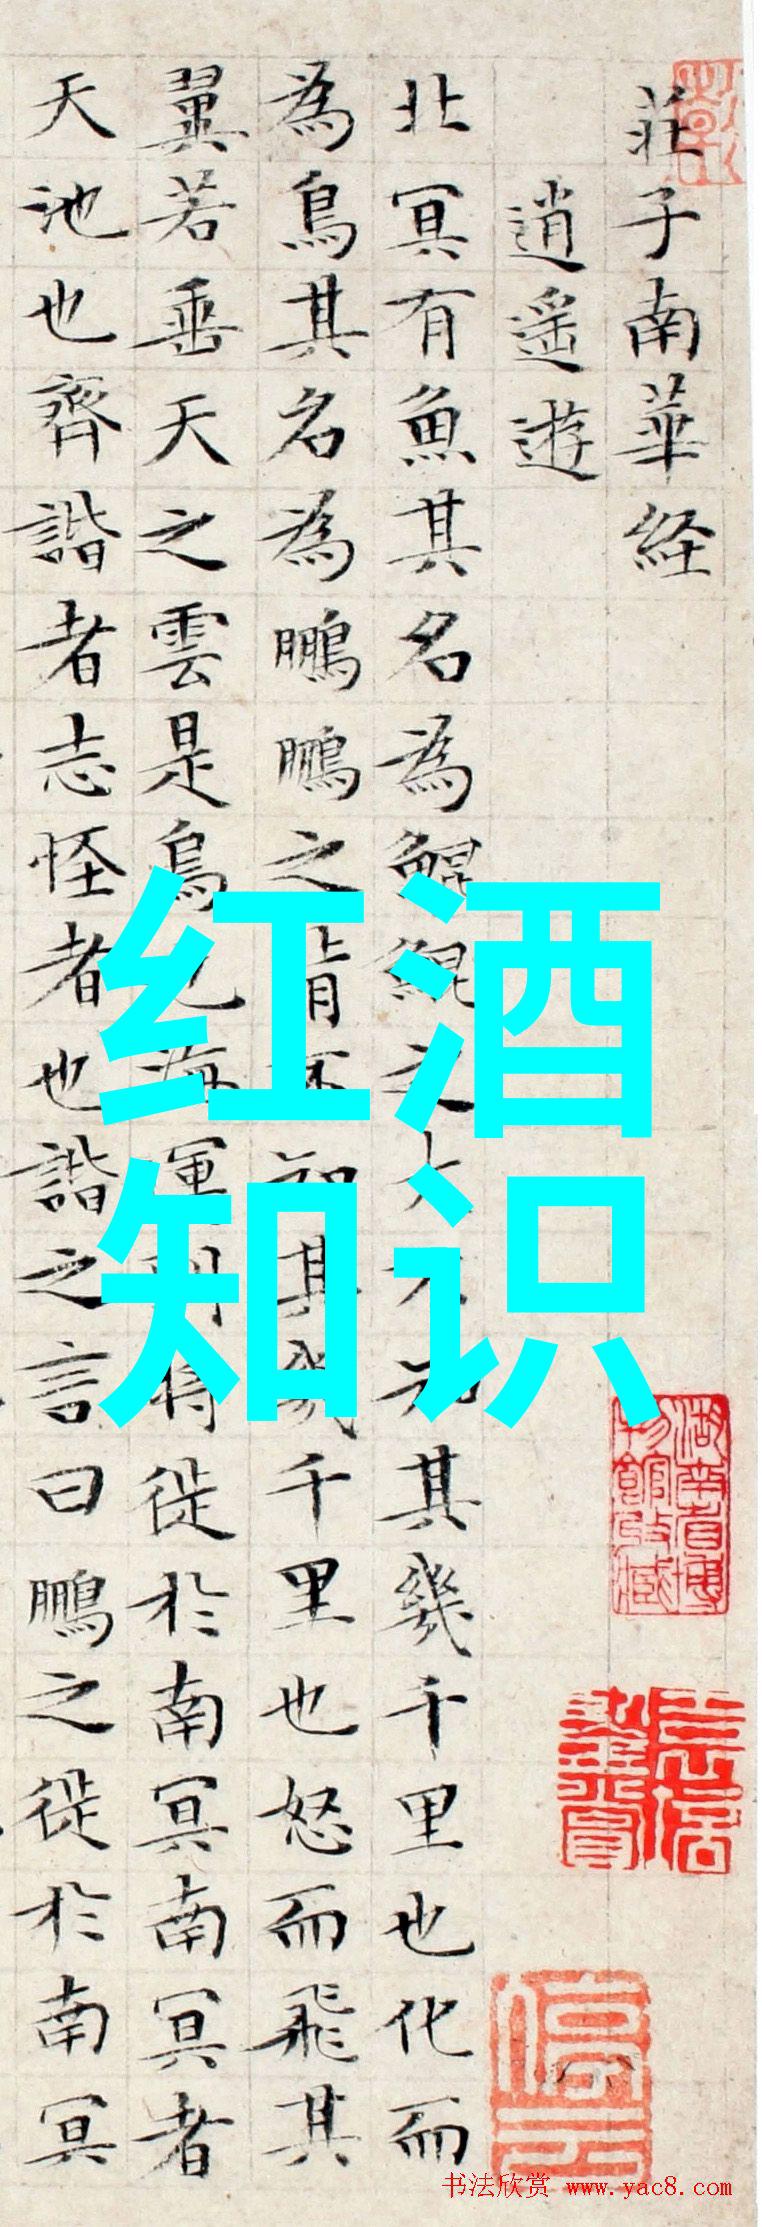 莊子南華経
逍遥遊
北冥有魚其名為鯤鯤之大不知其幾千里也化而
為鳥其名為鵬鵬之背不知其幾千里也怒而飛其
翼若垂天之雲是鳥也海運則將徙於南冥南冥者
天池也齊諧者志怪者也諧之言曰鵬之徙於南冥
红酒
知识
湖南省博物館收藏
停云
书法欣赏 www.yac8.com